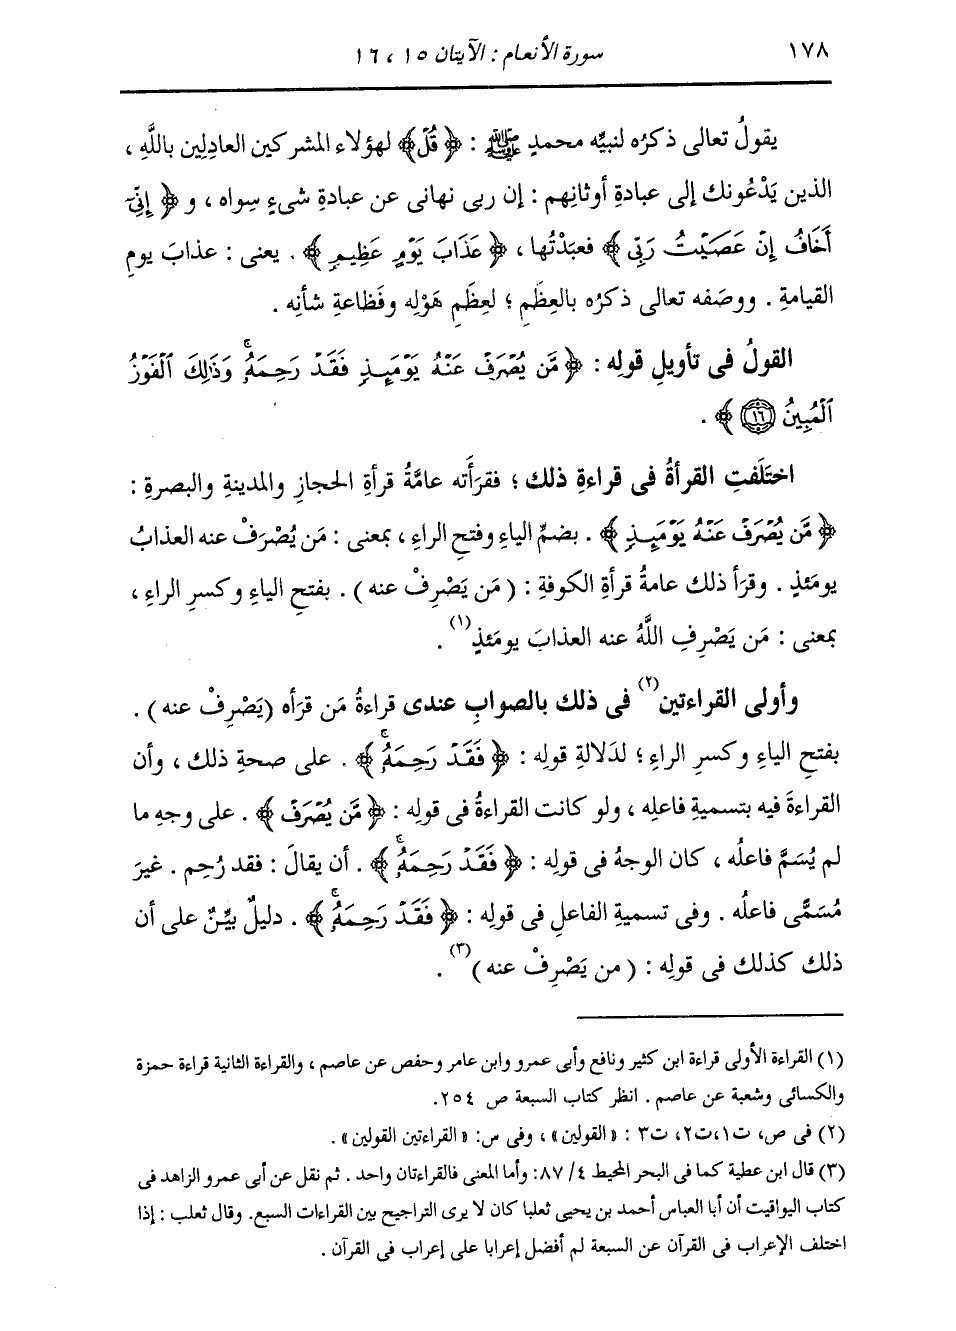 ١٧٨ سورة الأنعام : الآيتان ١٥ ، ١٦
يقولُ تعالى ذكرُه لنبيِّه محمدٍ ﷺ : ﴿ قُلْ ﴾ لهؤلاء المشركين العادِلِين باللَّهِ ،
الذين يَدْعُونك إلى عبادةِ أوثانِهم : إن ربى نهانى عن عبادةِ شىءٍ سِواه ، و ﴿ إِنِّىٓ
أَخَافُ إِنْ عَصَيْتُ رَبِّى ﴾ فعبَدْتُها ، ﴿ عَذَابَ يَوْمٍ عَظِيمٍ ﴾ . يعنى : عذابَ يومِ
القيامةِ . ووصَفه تعالى ذكرُه بالعِظَمِ ؛ لعِظَمِ هَوْلِه وفَظاعةِ شأنِه .
القولُ فى تأويلِ قولِه : ﴿ مَّن يُصْرَفْ عَنْهُ يَوْمَئِذٍ فَقَدْ رَحِمَهُۥ ۚ وَذَٰلِكَ ٱلْفَوْزُ
ٱلْمُبِينُ ١٦ ﴾ .
اختَلَفتِ القرأةُ فى قراءةِ ذلك ؛ فقرَأَته عامَّةُ قرأةِ الحجازِ والمدينةِ والبصرةِ :
﴿ مَّن يُصْرَفْ عَنْهُ يَوْمَئِذٍ ﴾ . بضمِّ الياءِ وفتحِ الراءِ ، بمعنى : مَن يُصْرَفْ عنه العذابُ
يومَئذٍ . وقرَأ ذلك عامةُ قرأةِ الكوفةِ : ( مَن يَصْرِفْ عنه ) . بفتحِ الياءِ وكسرِ الراءِ ،
بمعنى : مَن يَصْرِفِ اللَّهُ عنه العذابَ يومَئذٍ (١) .
وأولى القراءتين (٢) فى ذلك بالصوابِ عندى قراءةُ مَن قرَأه ( يَصْرِفْ عنه ) .
بفتحِ الياءِ وكسرِ الراءِ ؛ لدَلالةِ قولِه : ﴿ فَقَدْ رَحِمَهُۥ ۚ ﴾ . على صحةِ ذلك ، وأن
القراءةَ فيه بتسميةِ فاعلِه ، ولو كانت القراءةُ فى قولِه : ﴿ مَّن يُصْرَفْ ﴾ . على وجهِ ما
لم يُسَمَّ فاعلُه ، كان الوجهُ فى قولِه : ﴿ فَقَدْ رَحِمَهُۥ ۚ ﴾ . أن يقالَ : فقد رُحِم . غيرَ
مُسَمًّى فاعلُه . وفى تسميةِ الفاعلِ فى قولِه : ﴿ فَقَدْ رَحِمَهُۥ ۚ ﴾ . دليلٌ بيِّنٌ على أن
ذلك كذلك فى قولِه : ( من يَصْرِفْ عنه ) (٣) .
(١) القراءة الأولى قراءة ابن كثير ونافع وأبى عمرو وابن عامر وحفص عن عاصم ، والقراءة الثانية قراءة حمزة
والكسائى وشعبة عن عاصم . انظر كتاب السبعة ص ٢٥٤.
(٢) فى ص، ت١،ت٢، ت٣ : « القولين » ، وفى س: « القراءتين القولين » .
(٣) قال ابن عطية كما فى البحر المحيط ٤/ ٨٧: وأما المعنى فالقراءتان واحد . ثم نقل عن أبى عمرو الزاهد فى
كتاب اليواقيت أن أبا العباس أحمد بن يحيى ثعلبا كان لا يرى التراجيح بين القراءات السبع. وقال ثعلب : إذا
اختلف الإعراب فى القرآن عن السبعة لم أفضل إعرابا على إعراب فى القرآن .